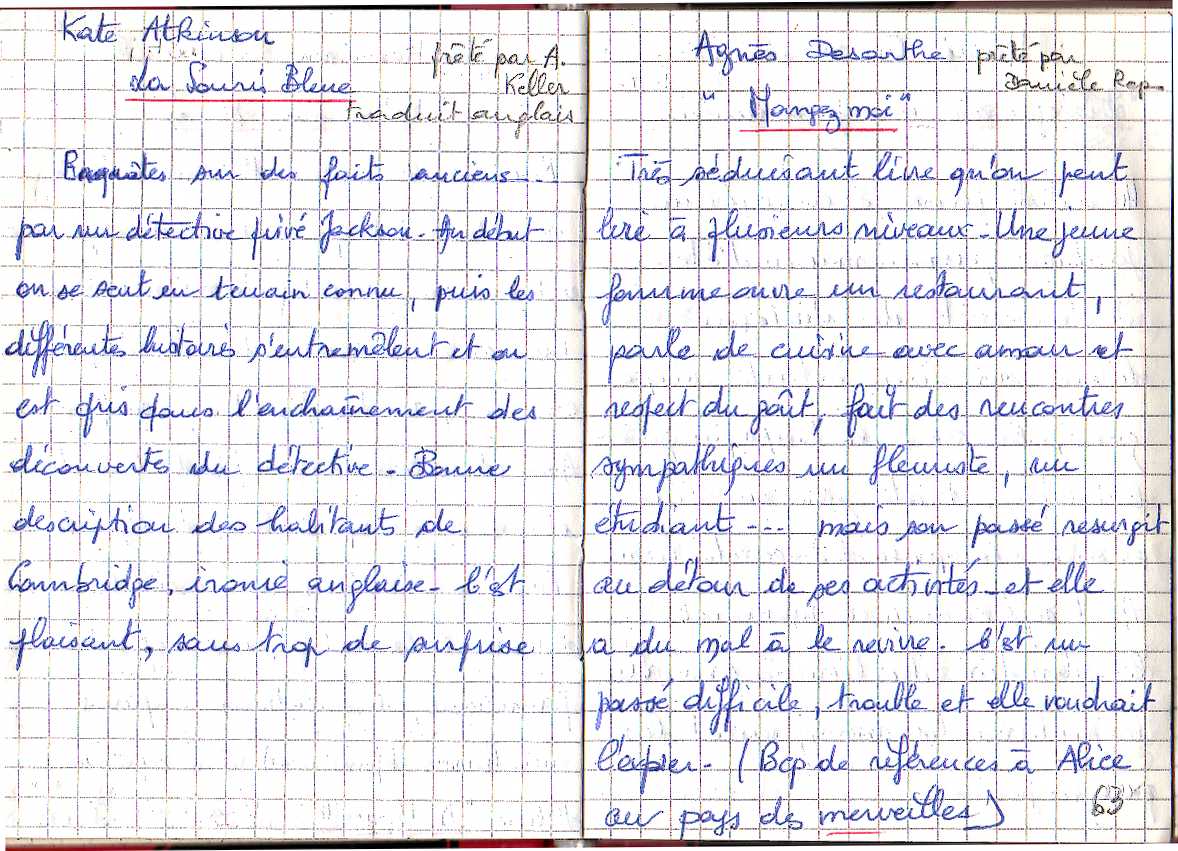 Kate Atkinson
prêté par A.
Keller
La Souris Bleue
Traduit anglais
Enquêtes sur des faits anciens...
par un détective privé Jackson. Au début
on se sent en terrain connu, puis les
différentes histoires s'entremêlent et on
est pris dans l'enchaînement des
découvertes du détective. Bonne
description des habitants de
Cambridge, ironie anglaise. C'est
plaisant, sans trop de surprise
Agnès Desarthe prêté par
Danièle Rop.
"Mangez moi"
Très séduisant livre qu'on peut
lire à plusieurs niveaux. Une jeune
femme ouvre un restaurant,
parle de cuisine avec amour et
respect du goût, fait des rencontres
sympathiques un fleuriste, un
étudiant --- mais son passé resurgit
au détour de ses activités et elle
a du mal à le revivre. C'est un
passé difficile, trouble et elle voudrait
l'expier. (Bcp de références à Alice
au pays des merveilles)
63